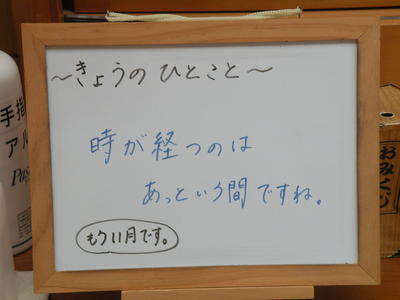 〜きょうの ひとこと〜
時が経つのは
あっという間ですね。
もう11月です。
手指
アル
Pas
おみくじ